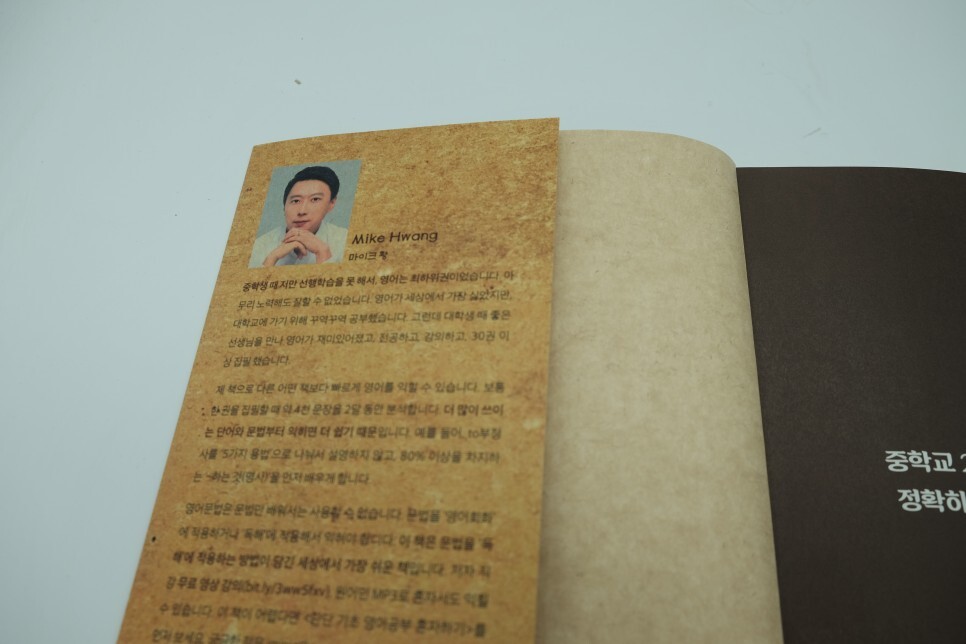 Mike Hwang
마이크 황
중학생 때 지만 선행학습을 못 해서, 영어는 최하위권이었습니다. 아
무리 노력해도 잘할 수 없었습니다. 영어가 세상에서 가장 싫었지만,
대학교에 가기 위해 꾸역꾸역 공부했습니다. 그런데 대학생 때 좋은
선생님을 만나 영어가 재미있어졌고, 전공하고, 강의하고, 30권 이
상 집필했습니다.
제 책으로 다른 어떤 책보다 빠르게 영어를 익힐 수 있습니다. 보통
한 권을 집필할 때 약 4천 문장을 2달 동안 분석합니다. 더 많이 쓰이
는 단어와 문법부터 익히면 더 쉽기 때문입니다. 예를 들어, to부정
사를 '5가지 용법'으로 나눠서 설명하지 않고, 80% 이상을 차지하
는 '~하는 것(명사)'을 먼저 배우게 합니다.
영어문법은 문법만 배워서는 사용할 수 없습니다. 문법을 '영어회화'
에 적용하거나 '독해'에 적용해서 익혀야 합니다. 이 책은 문법을 '독
해'에 적용하는 방법이 담긴 세상에서 가장 쉬운 책입니다. 저자 직
강 무료 영상 강의(bit.ly/3ww5fxv), 원어민 MP3로 혼자서도 익힐
수 있습니다. 이 책이 어렵다면 <한단 기초 영어공부 혼자하기>를
먼저 보세요. 궁금한 점은
중학교 2
정확하